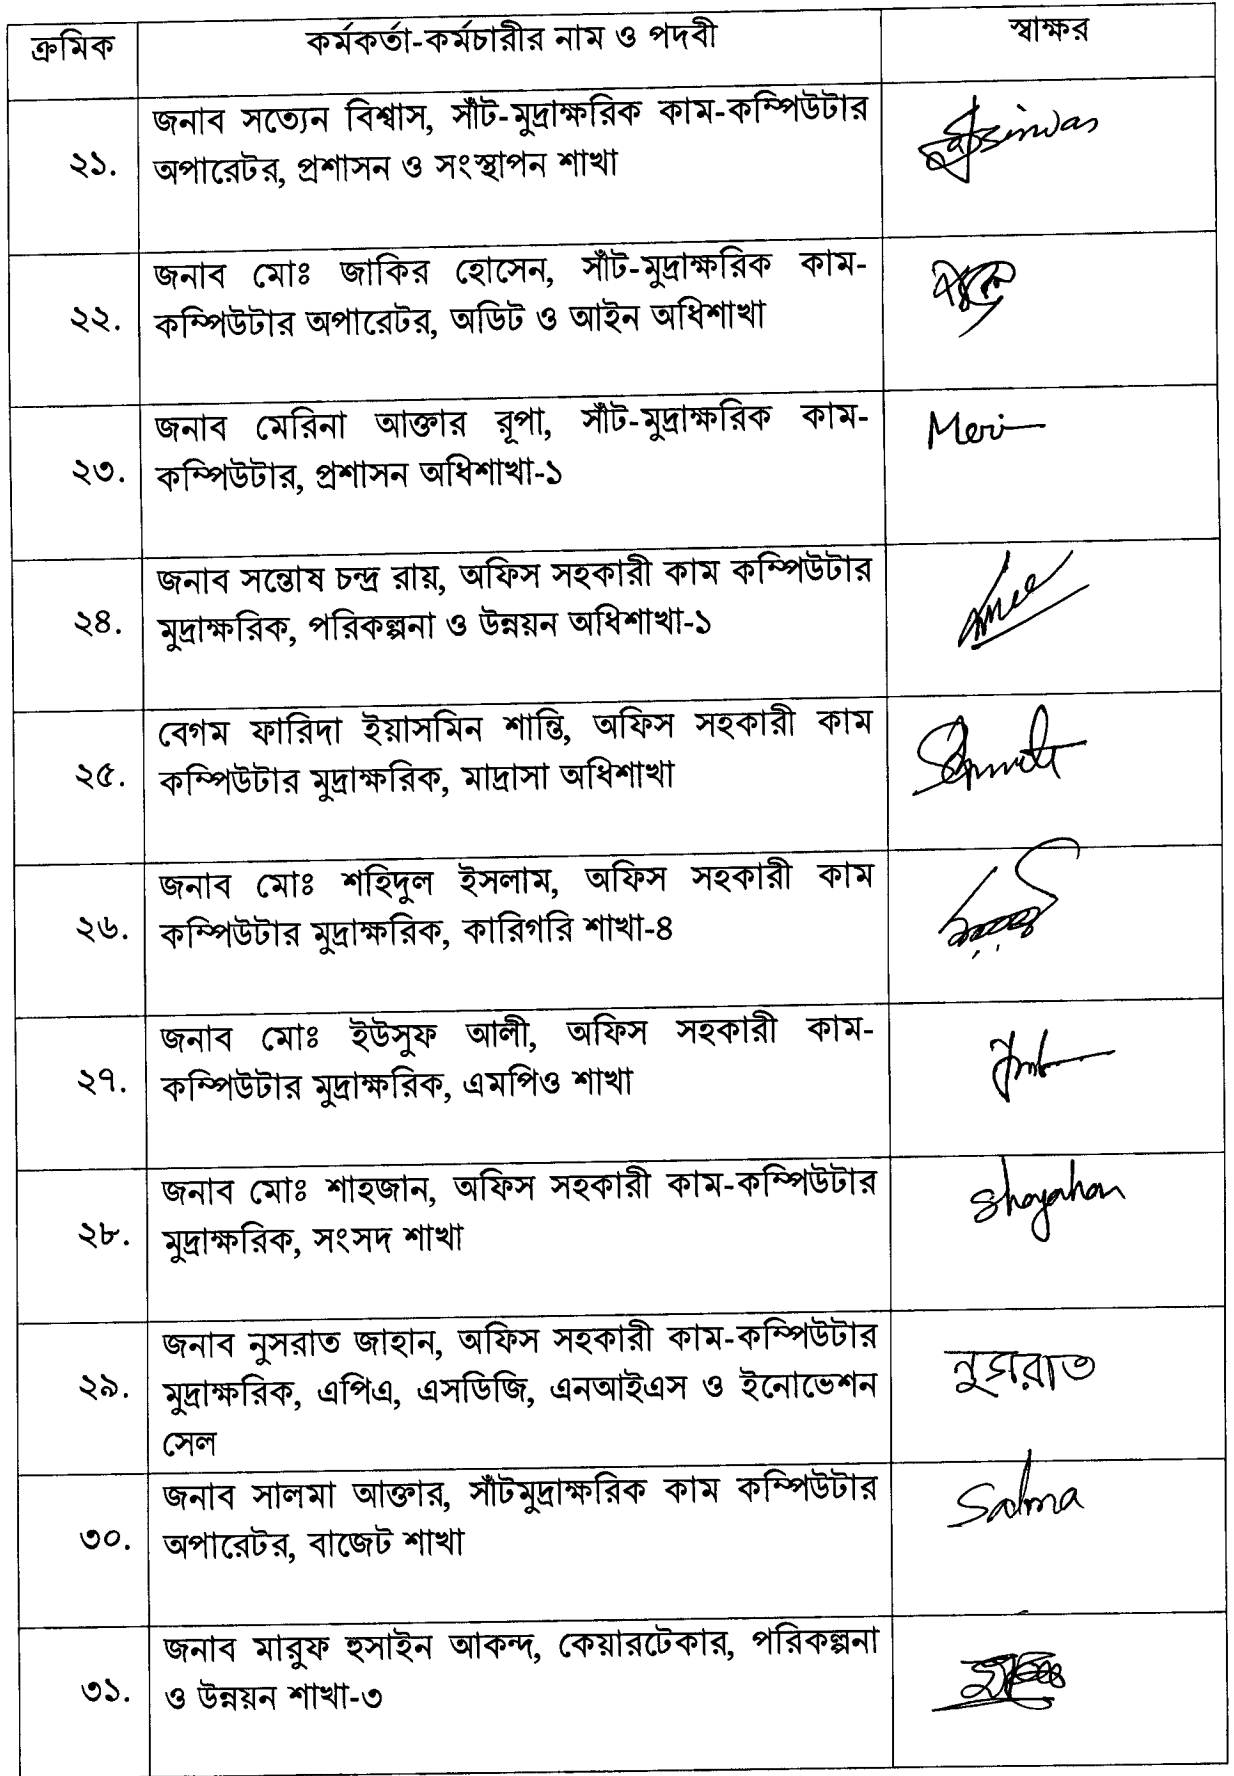 ক্রমিক কর্মকর্তা-কর্মচারীর নাম ও পদবী স্বাক্ষর
জনাব সত্যেন বিশ্বাস, সাঁট-মুদ্রাক্ষরিক কাম-কম্পিউটার
২১. অপারেটর, প্রশাসন ও সংস্থাপন শাখা
জনাব মোঃ জাকির হোসেন, সাঁট-মুদ্রাক্ষরিক কাম-
২২. কম্পিউটার অপারেটর, অডিট ও আইন অধিশাখা
জনাব মেরিনা আক্তার রূপা, সাঁট-মুদ্রাক্ষরিক কাম- Meri
২৩. কম্পিউটার, প্রশাসন অধিশাখা-১
জনাব সন্তোষ চন্দ্র রায়, অফিস সহকারী কাম কম্পিউটার
২৪. মুদ্রাক্ষরিক, পরিকল্পনা ও উন্নয়ন অধিশাখা-১
বেগম ফারিদা ইয়াসমিন শান্তি, অফিস সহকারী কাম
২৫. কম্পিউটার মুদ্রাক্ষরিক, মাদ্রাসা অধিশাখা
জনাব মোঃ শহিদুল ইসলাম, অফিস সহকারী কাম
২৬. কম্পিউটার মুদ্রাক্ষরিক, কারিগরি শাখা-৪
জনাব মোঃ ইউসুফ আলী, অফিস সহকারী কাম-
২৭. কম্পিউটার মুদ্রাক্ষরিক, এমপিও শাখা
জনাব মোঃ শাহজান, অফিস সহকারী কাম-কম্পিউটার Shajahan
২৮. মুদ্রাক্ষরিক, সংসদ শাখা
জনাব নুসরাত জাহান, অফিস সহকারী কাম-কম্পিউটার নুসরাত
২৯. মুদ্রাক্ষরিক, এপিএ, এসডিজি, এনআইএস ও ইনোভেশন
সেল
জনাব সালমা আক্তার, সাঁটমুদ্রাক্ষরিক কাম কম্পিউটার Salma
৩০. অপারেটর, বাজেট শাখা
জনাব মারুফ হুসাইন আকন্দ, কেয়ারটেকার, পরিকল্পনা
৩১. ও উন্নয়ন শাখা-৩